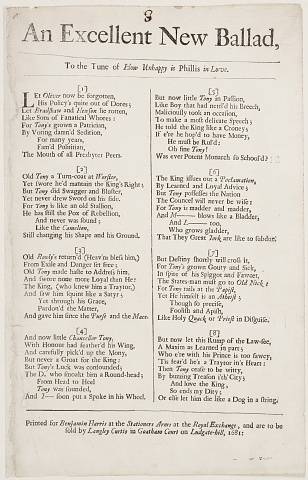 8
An Excellent New Ballad,
To the Tune of How Unhappy is Phillis in Love.
[1]
LEt Oliver now be forgotten,
His Policy's quite out of Doors;
Let Bradshaw and Hewson lie rotten,
Like Sons of Fanatical Whores:
For Tony's grown a Patrician,
By Voting damn'd Sedition,
For many years,
Fam'd Politician,
The Mouth of all Presbyter Peers.
[2]
Old Tony a Turn-coat at Worster,
Yet swore he'd maintain the King's Right;
But Tony did Swagger and Bluster,
Yet never drew Sword on his side.
For Tony is like an old Stallion,
He has still the Pox of Rebellion,
And never was sound;
Like the Camelion,
Still changing his Shape and his Ground.
[3]
Old Rowly's return'd (Heav'n bless him,)
From Exile and Danger set free;
Old Tony made haste to Address him,
And swore none more Loyal than He:
The King, (who knew him a Traytor,)
And saw him squint like a Satyr;
Yet through his Grace,
Pardon'd the Matter,
And gave him since the Purse and the Mace.
[4]
And now little Chancellor Tony,
With Honour had feather'd his Wing,
And carefully pick'd up the Mony,
But never a Groat for the King:
But Tony's Luck was confounded;
The D. who smoakt him a Round-head;
From Head to Heel
Tony was sounded,
And Y— soon put a Spoke in his Wheel.
[5]
But now little Tony in Passion,
Like Boy that had nettl'd his Breech,
Maliciously took an occasion,
To make a most delicate Speech;
He told the King like a Croney;
If e're he hop'd to have Money,
He must be Rul'd:
Oh fine Tony!
Was ever Potent Monarch so School'd?
[6]
The King issues out a Proclamation,
By Learned and Loyal Advice;
But Tony possesses the Nation
The Councel will never be wise:
For Tony is madder and madder,
And M—— blows like a Bladder,
And L—— too,
Who grows gladder,
That They Great York are like to subdue.
[7]
But Destiny shortly will cross it,
For Tony's grown Gouty and Sick,
In spite of his Spiggot and Favcet,
The States-man must go to Old Nick:
For Tony rails at the Papist,
Yet He himself is an Atheist;
Though so precise,
Foolish and Apish,
Like Holy Quack or Priest in Disguise.
[8]
But now let this Rump of the Law see,
A Maxim as Learned in part;
Who e're with his Prince is too sawcy,
'Tis fear'd he's a Traytor in's Heart:
Then Tony cease to be witty,
By buming Treason i'th' City;
And love the King,
So ends my Ditty;
Or else let him die like a Dog in a string.
Printed for Benjamin Harris at the Stationers Arms at the Royal Exchange, and are to be
sold by Langley Curtis in Goatham Court on Ludgate-hill, 1681: